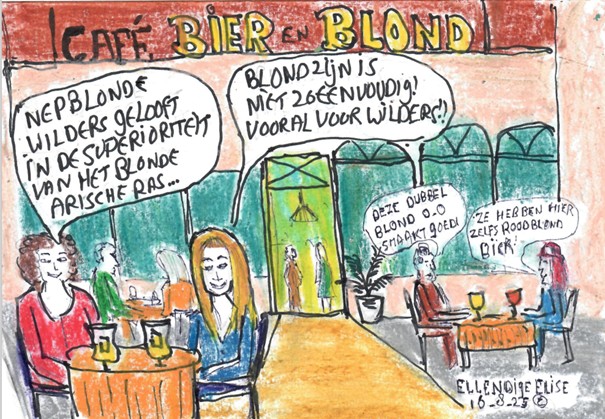 CAFÉ BIER EN BLOND
NEPBLONDE
WILDERS GELOOFT
IN DE SUPERIORITEIT
VAN HET BLONDE
ARISCHE RAS...
BLOND ZIJN IS
NIET ZO EENVOUDIG!
VOORAL VOOR WILDERS!!
DEZE DUBBEL
BLOND 0.0
SMAAKT GOED!
ZE HEBBEN HIER
ZELFS ROODBLOND
BIER!
ELLENDIGE ELISE
16-8-25 ©